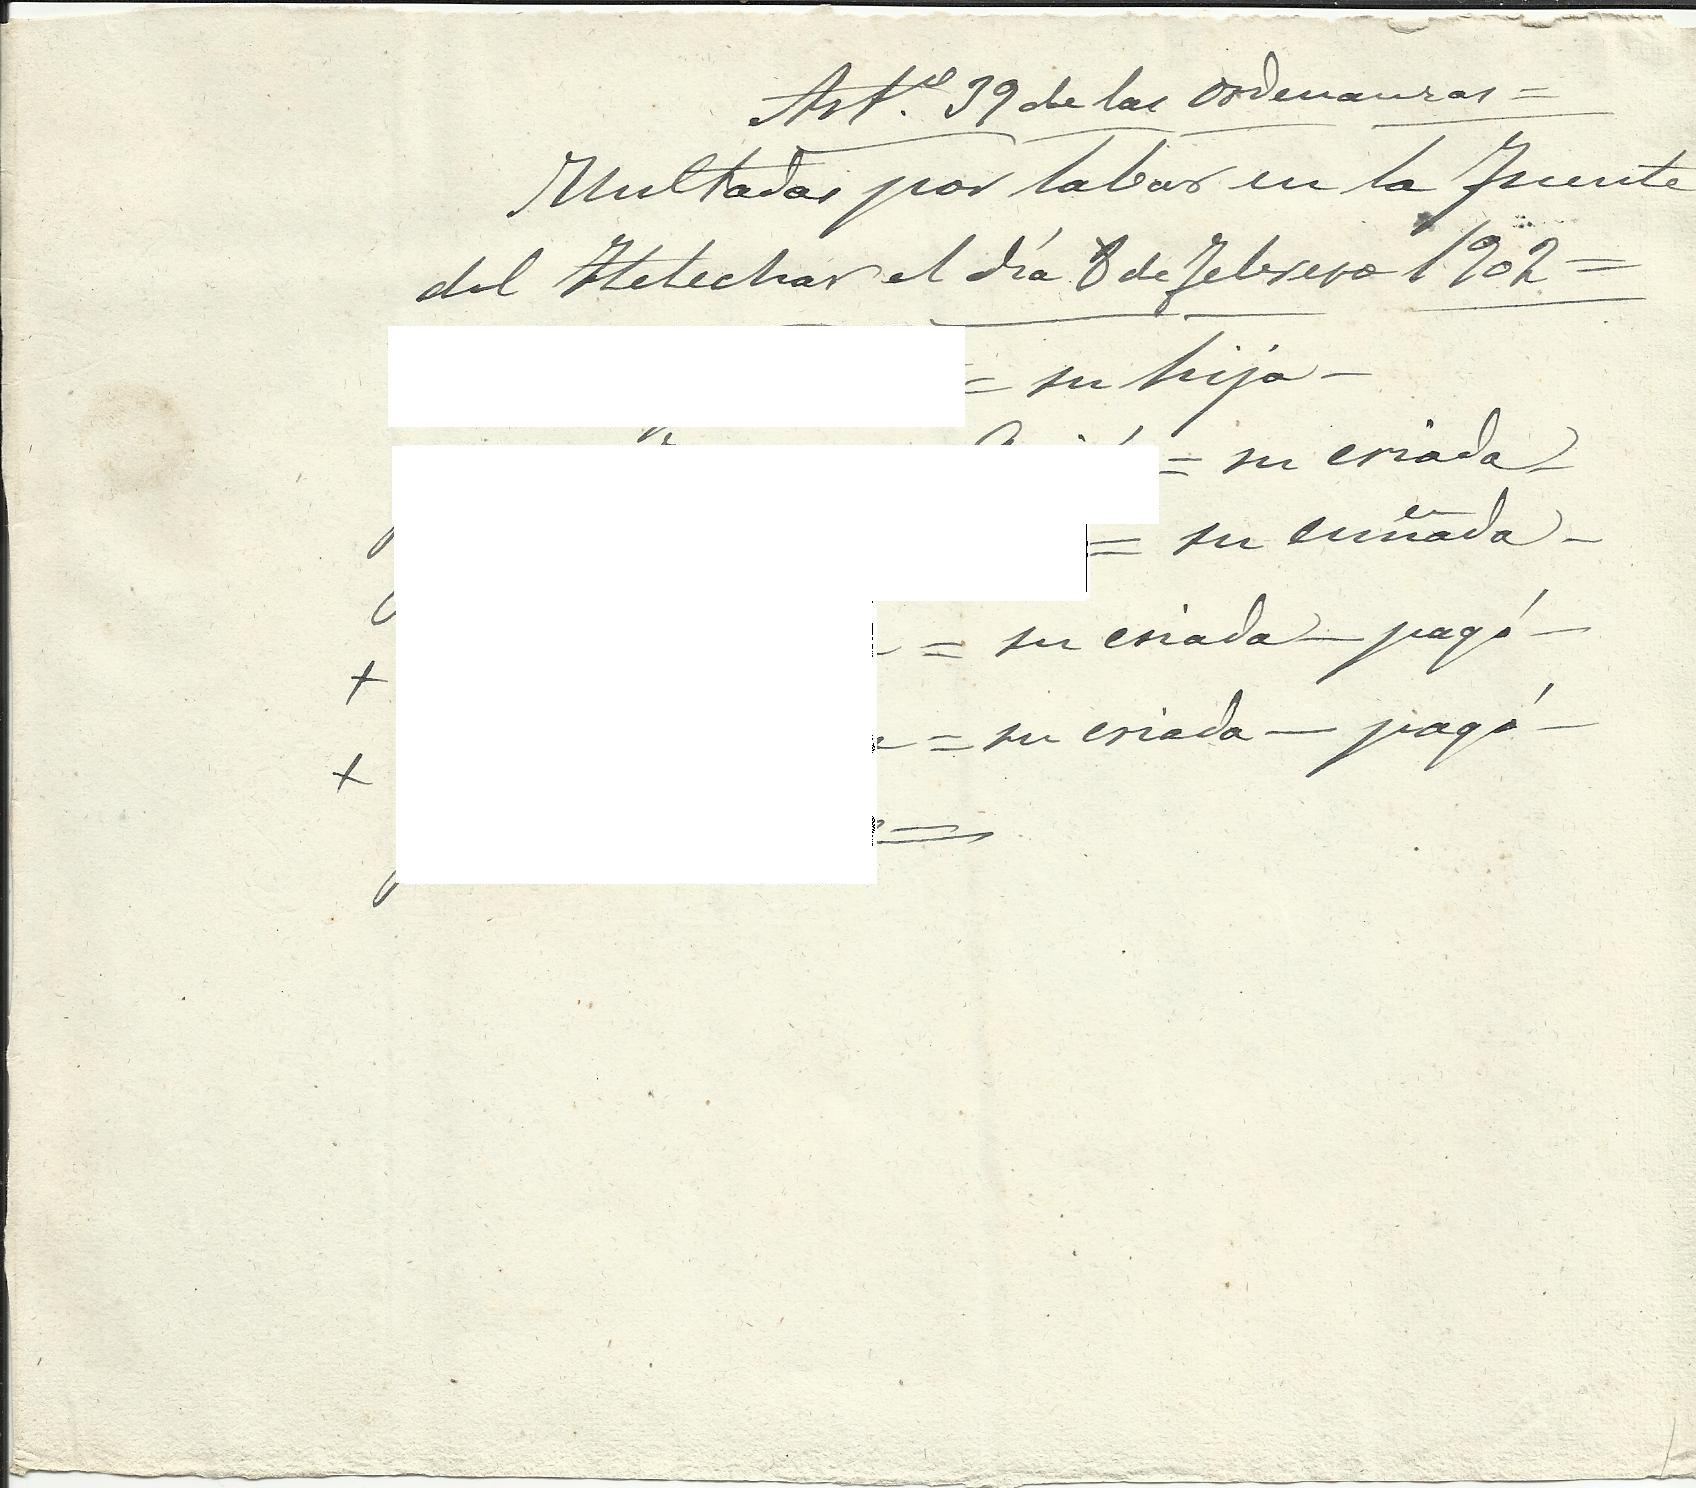 Art.º 39 de las ordenanzas =
Multadas por labar en la Fuente
del Helechar el día 8 de Febrero 1902 =
= su hija -
= su criada -
= su cuñada -
+ = su criada - pagó -
+ = su criada - pagó -
=